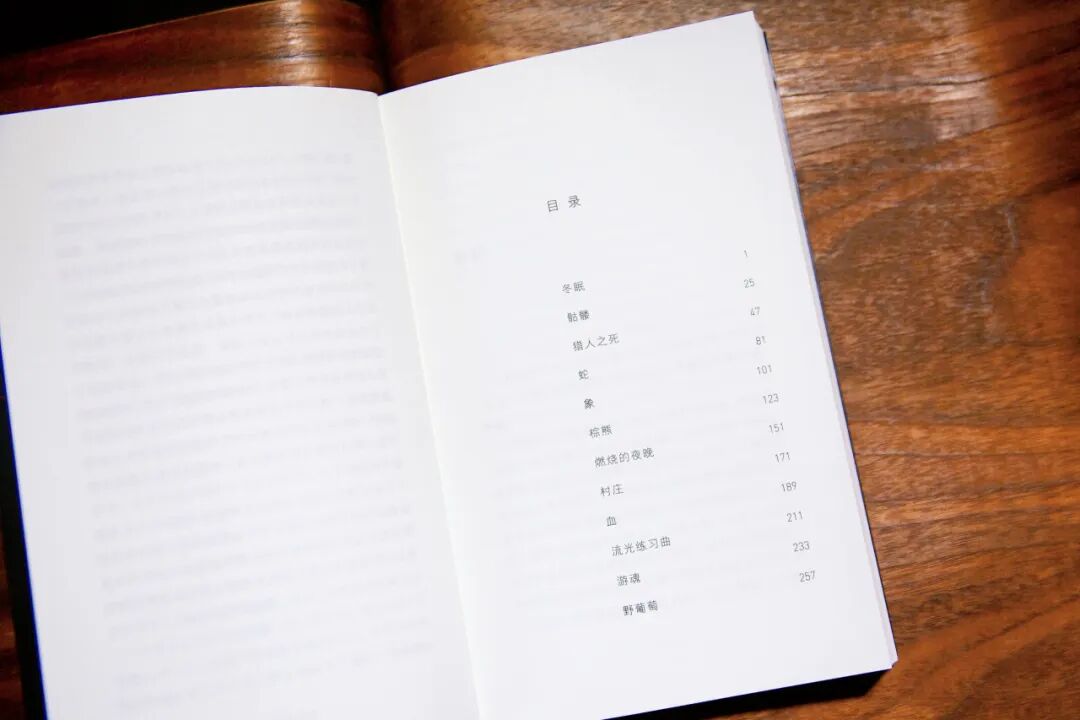 目录
冬眠 1
骷髅 25
猎人之死 47
蛇 81
象 101
棕熊 123
燃烧的夜晚 151
村庄 171
血 189
流光练习曲 211
游魂 233
野葡萄 257